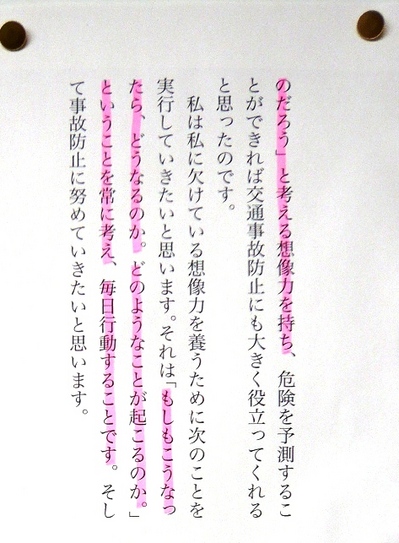 のだろう」と考える想像力を持ち、危険を予測するこ
とができれば交通事故防止にも大きく役立ってくれる
と思ったのです。
私は私に欠けている想像力を養うために次のことを
実行していきたいと思います。それは「もしもこうなっ
たら、どうなるのか。どのようなことが起こるのか。」
ということを常に考え、毎日行動することです。そし
て事故防止に努めていきたいと思います。